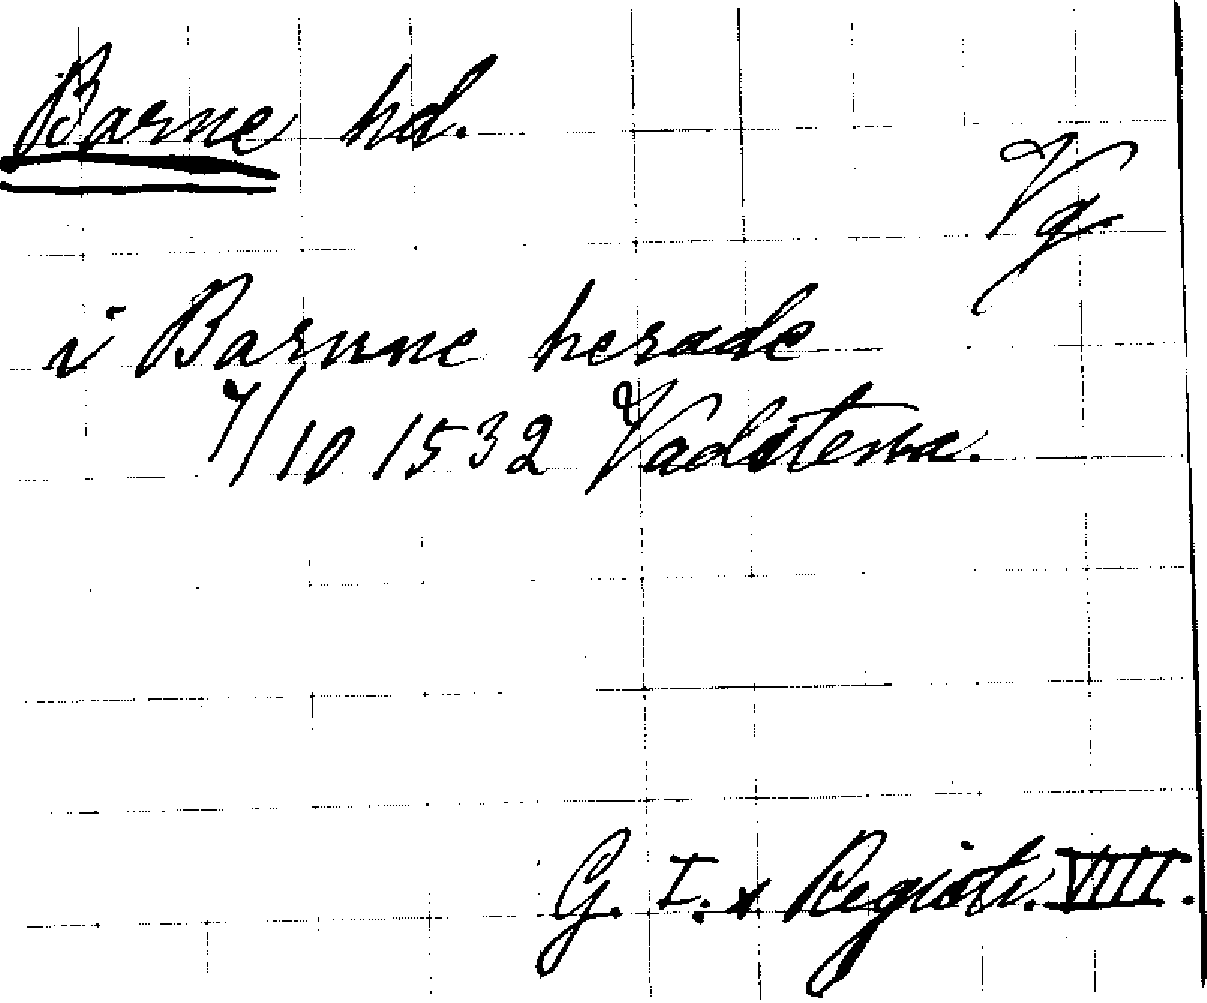 Barne hd.
Vg
i Barnne herade
7/10 1532 Vadstena.
G. I:s Registr. VIII.